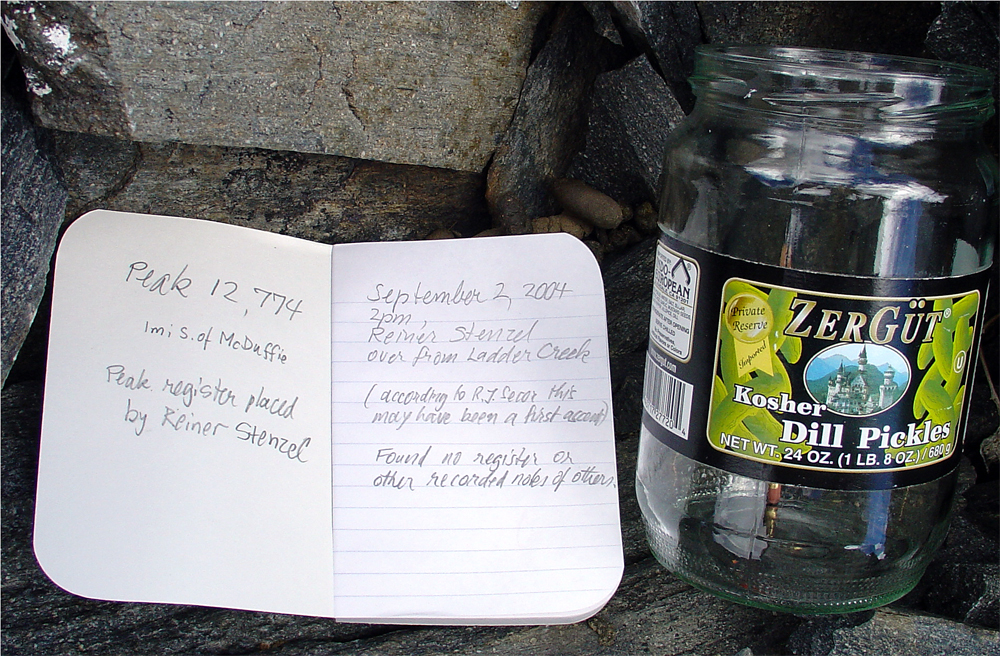 Peak 12,774
1mi S. of McDuffie
Peak register placed
by Reiner Stenzel
September 2, 2004
2pm,
Reiner Stenzel
over from Ladder Creek
(according to R.J. Secor this
may have been a first ascent)
Found no register or
other recorded notes of others.
EUROPEAN
Private
Reserve
Imported
ZERGÜT®
Kosher
Dill Pickles
NET WT. 24 OZ. (1 LB. 8 OZ.) / 680 g
U